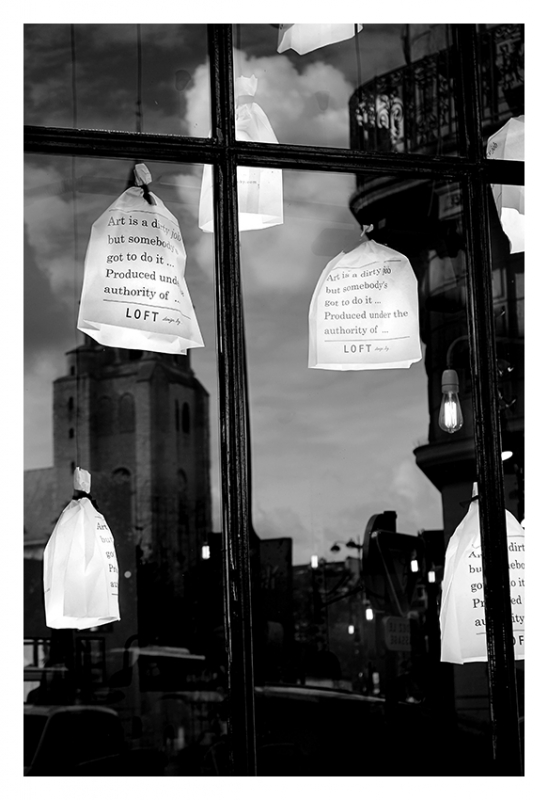 Art is a dirty job
but somebody
got to do it ...
Produced und
authority of ...
LOFT design by
Art is a dirty job
but somebody's
got to do it ...
Produced under the
authority of ...
LOFT design by
Art
but
go
P
a
A dirt
bu mebo
go o it
Pr ced
au ity
OF